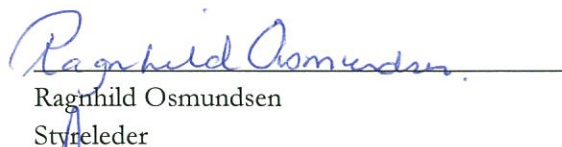 Ragnhild Osmundsen.
Ragnhild Osmundsen
Styreleder